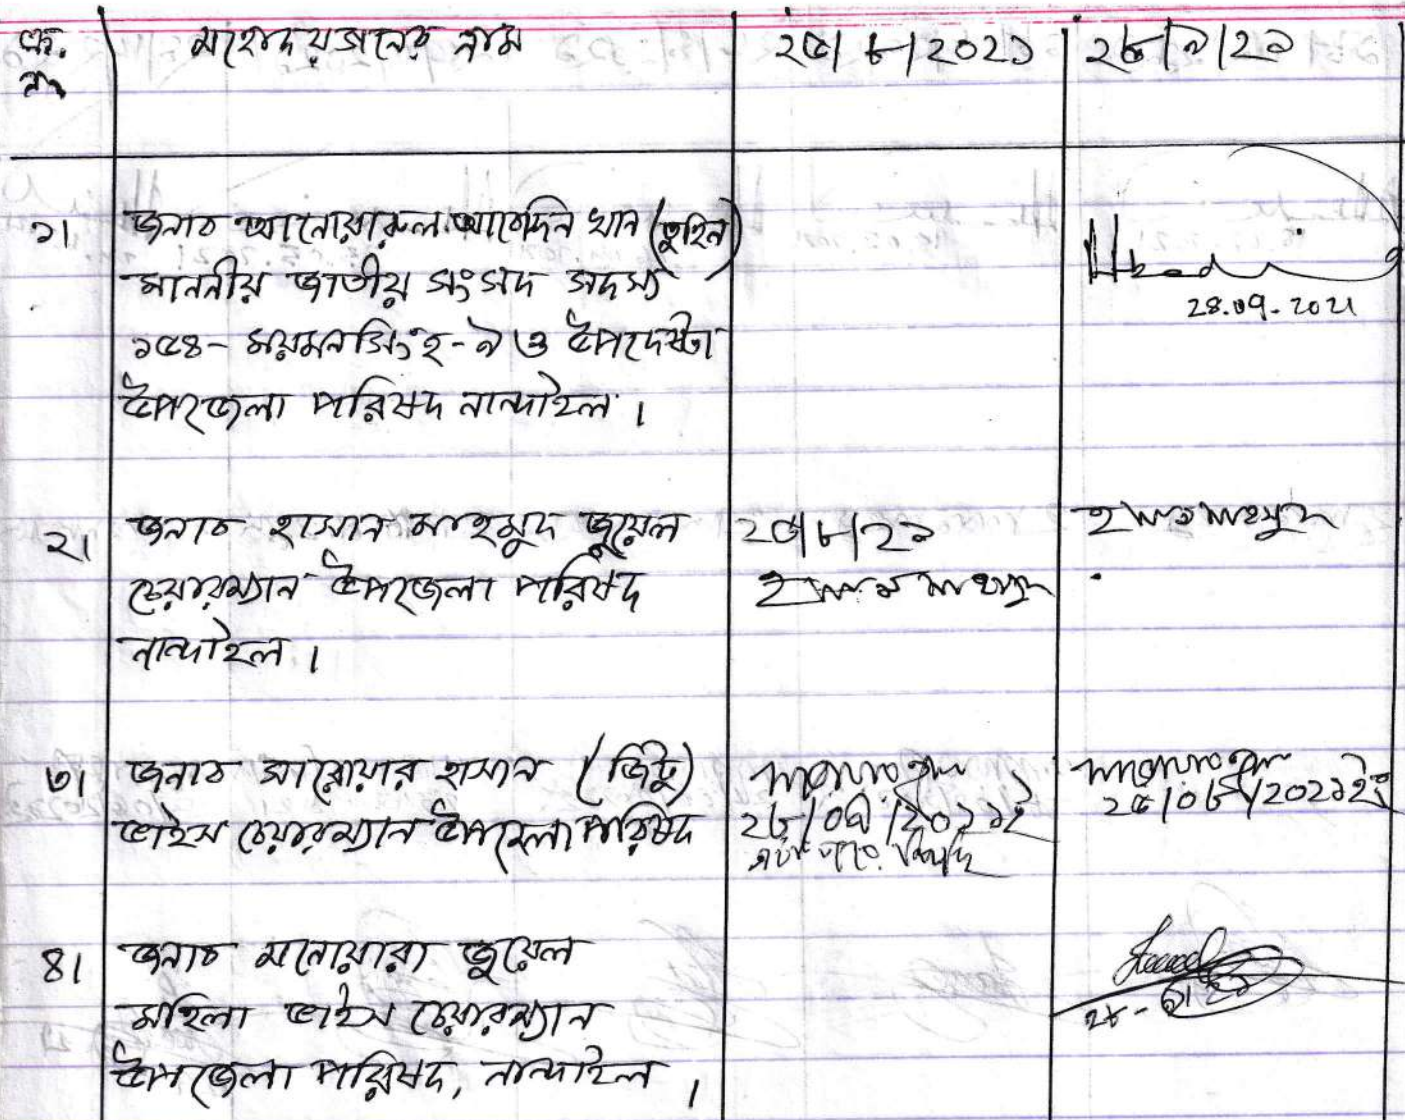 ক্র. মহোদয়গনের নাম ২৫/৮/২০২১ ২৮/৯/২১
নং
১। জনাব আনোয়ারুল আবেদিন খান (তুহিন)
মাননীয় জাতীয় সংসদ সদস্য
১৫৪- ময়মনসিংহ-৯ ও উপদেষ্টা
উপজেলা পরিষদ নান্দাইল।
28.09.2021
২। জনাব হাসান মাহমুদ জুয়েল
চেয়ারম্যান উপজেলা পরিষদ
নান্দাইল।
২৫/৮/২১
হাসান মাহমুদ
হাসান মাহমুদ
৩। জনাব সারোয়ার হাসান (জিটু)
ভাইস চেয়ারম্যান উপজেলা পরিষদ
২৫/০৮/২০২১ইং
৪। জনাব মনোয়ারা জুয়েল
মহিলা ভাইস চেয়ারম্যান
উপজেলা পরিষদ, নান্দাইল।